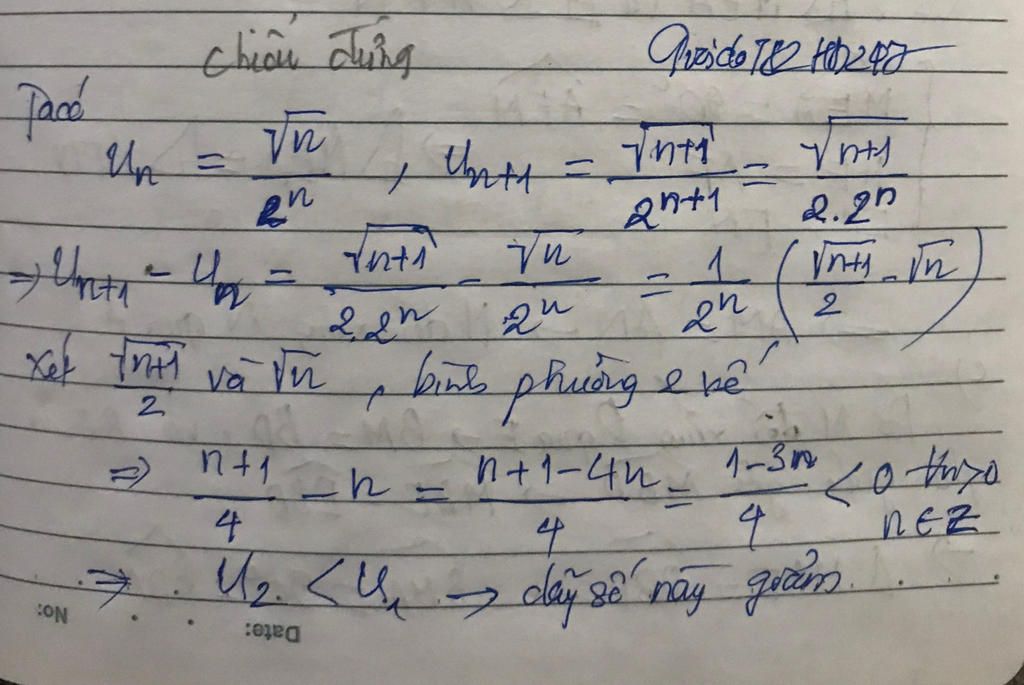 chiều đứng
Ta có
Uₙ = √n / 2ⁿ , Uₙ₊₁ = √(n+1) / 2ⁿ⁺¹ = √(n+1) / 2.2ⁿ
⇒ Uₙ₊₁ - Uₙ = √(n+1) / 2.2ⁿ - √n / 2ⁿ = 1 / 2ⁿ (√(n+1) / 2 - √n)
Xét √(n+1) / 2 và √n , bình phương 2 vế
⇒ (n+1) / 4 - n = (n+1-4n) / 4 = (1-3n) / 4 < 0 ∀n>0
n ∈ Z
⇒ U₂ < U₁ → dãy số này giảm
No:
Date: